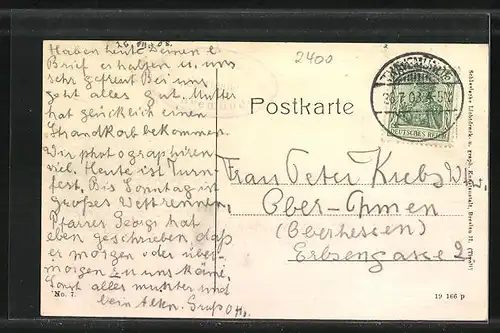 26. VII. 08.
Haben heute Deinen l.
Brief erhalten u. uns
sehr gefreut. Bei uns
geht alles gut. Mutter
hat glücklich einen
Strandkorb bekommen.
Wir photographiren
viel. Heute ist Turn-
fest. Bis Sonntag ist
großes Wettrennen.
Pfarrer Georgi hat
eben geschrieben, daß
er morgen oder über-
morgen zu uns käme.
Sonst alles munter und
beim Alten. Gruß
No. 7.
2400
Postkarte
TRAVEMÜNDE
DEUTSCHES REICH
Frau Peter Krebs Wtw.
Ober-Ohmen
(Oberhessen)
Erbsengasse 2
19 166 p
Schlesische Lichtdruck- u. graph. Kunstanstalt, Breslau II.